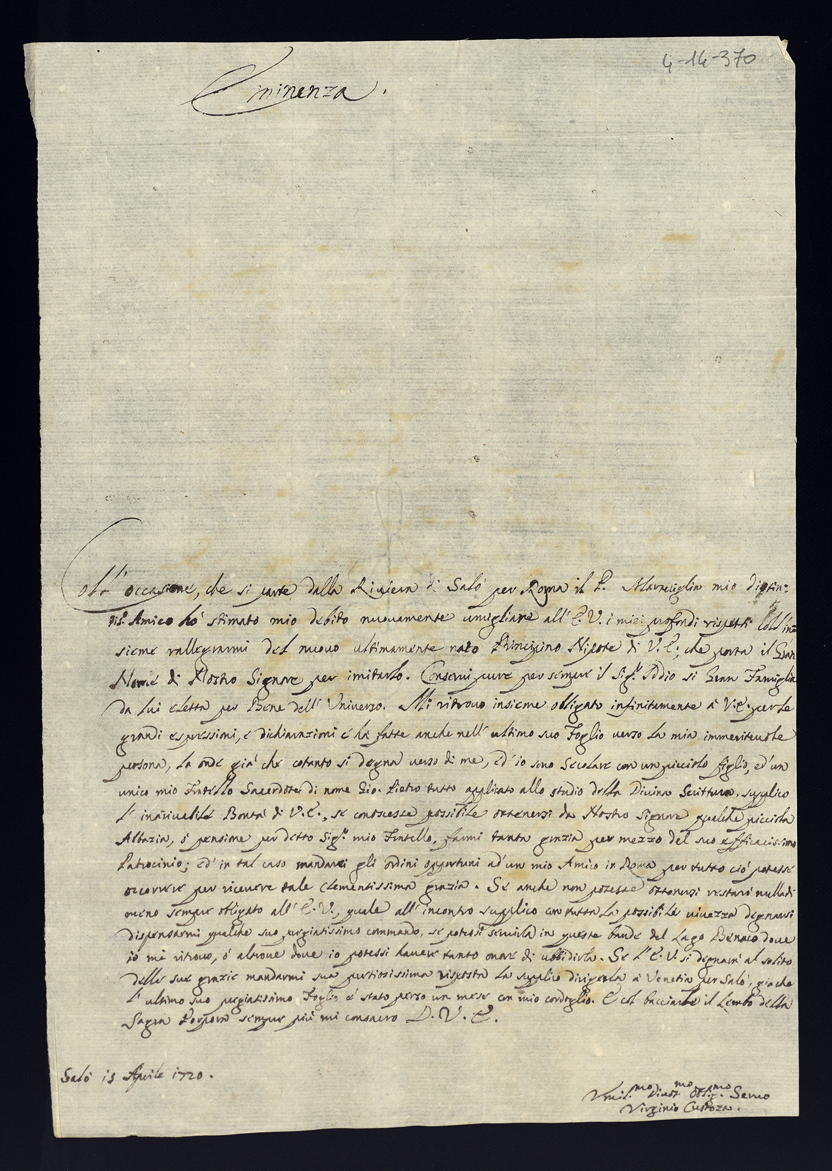 4-14-370
Eminenza.
Coll' occasione, che si parte dalla Riviera di Salò per Roma il P. Maraviglia mio distin:
tiss.o Amico hò stimato mio debito nuovamente umigliare all' E.V. i miei profondi rispetti coll' in:
sieme rallegrarmi del nuovo ultimamente nato Principino Nipote di V.E., che porta il Gran
Nome di Nostro Signore per imitarlo. Conservi pure per sempre il Sig.r Iddio si Gran Famiglia
da lui eletta per Bene dell' Universo. Mi ritrovo insieme obligato infinitamente à V.E. per le
grandi espressioni, e dichiarazioni c' hà fatte anche nell' ultimo suo Foglio verso la mia immeritevole
persona, la onde già che cotanto si degna verso di me, ed' io sono secolare con un picciolo figlio, ed' un
unico mio Fratello Sacerdote di nome Gio. Pietro tutto applicato allo studio della Divina Scrittura, supplico
l' inarivabile Bontà di V.E., se conoscesse possibile ottenersi da Nostro Signore qualche picciola
Abbazia, ò pensione per detto Sig.r mio Fratello, farmi tanta grazia per mezzo del suo efficacissimo
Patrocinio; ed' in tal caso mandarei gli ordini opportuni ad' un mio Amico in Roma per tutto ciò potesse
occorrere per ricevere tale clementissima grazia. Se anche non potesse ottenersi restarò nulla di
meno sempre obligato all' E.V., quale all' incontro supplico con tutta la possibile vivezza degnarsi
dispensarmi qualche suo pregiatissimo commando, se potessi servirla in queste bande del Lago Benaco dove
io mi ritrovo, ò altrove dove io potessi havere tanto onore di ubbidirla. Se l' E.V. si degnarà al solito
delle sue grazie mandarmi sua pretiosissima risposta la supplico dirigerla à Venetia per Salò, già che
l' ultimo suo pregiatissimo Foglio è stato perso un mese con mio cordoglio. E col bacciarle il Lembo della
Sagra Porpora sempre più mi consacro D. V. E.
Salò 15 Aprile 1720.
Umil.mo Divot.mo Oblig.mo Servo
Virginio Custoza.